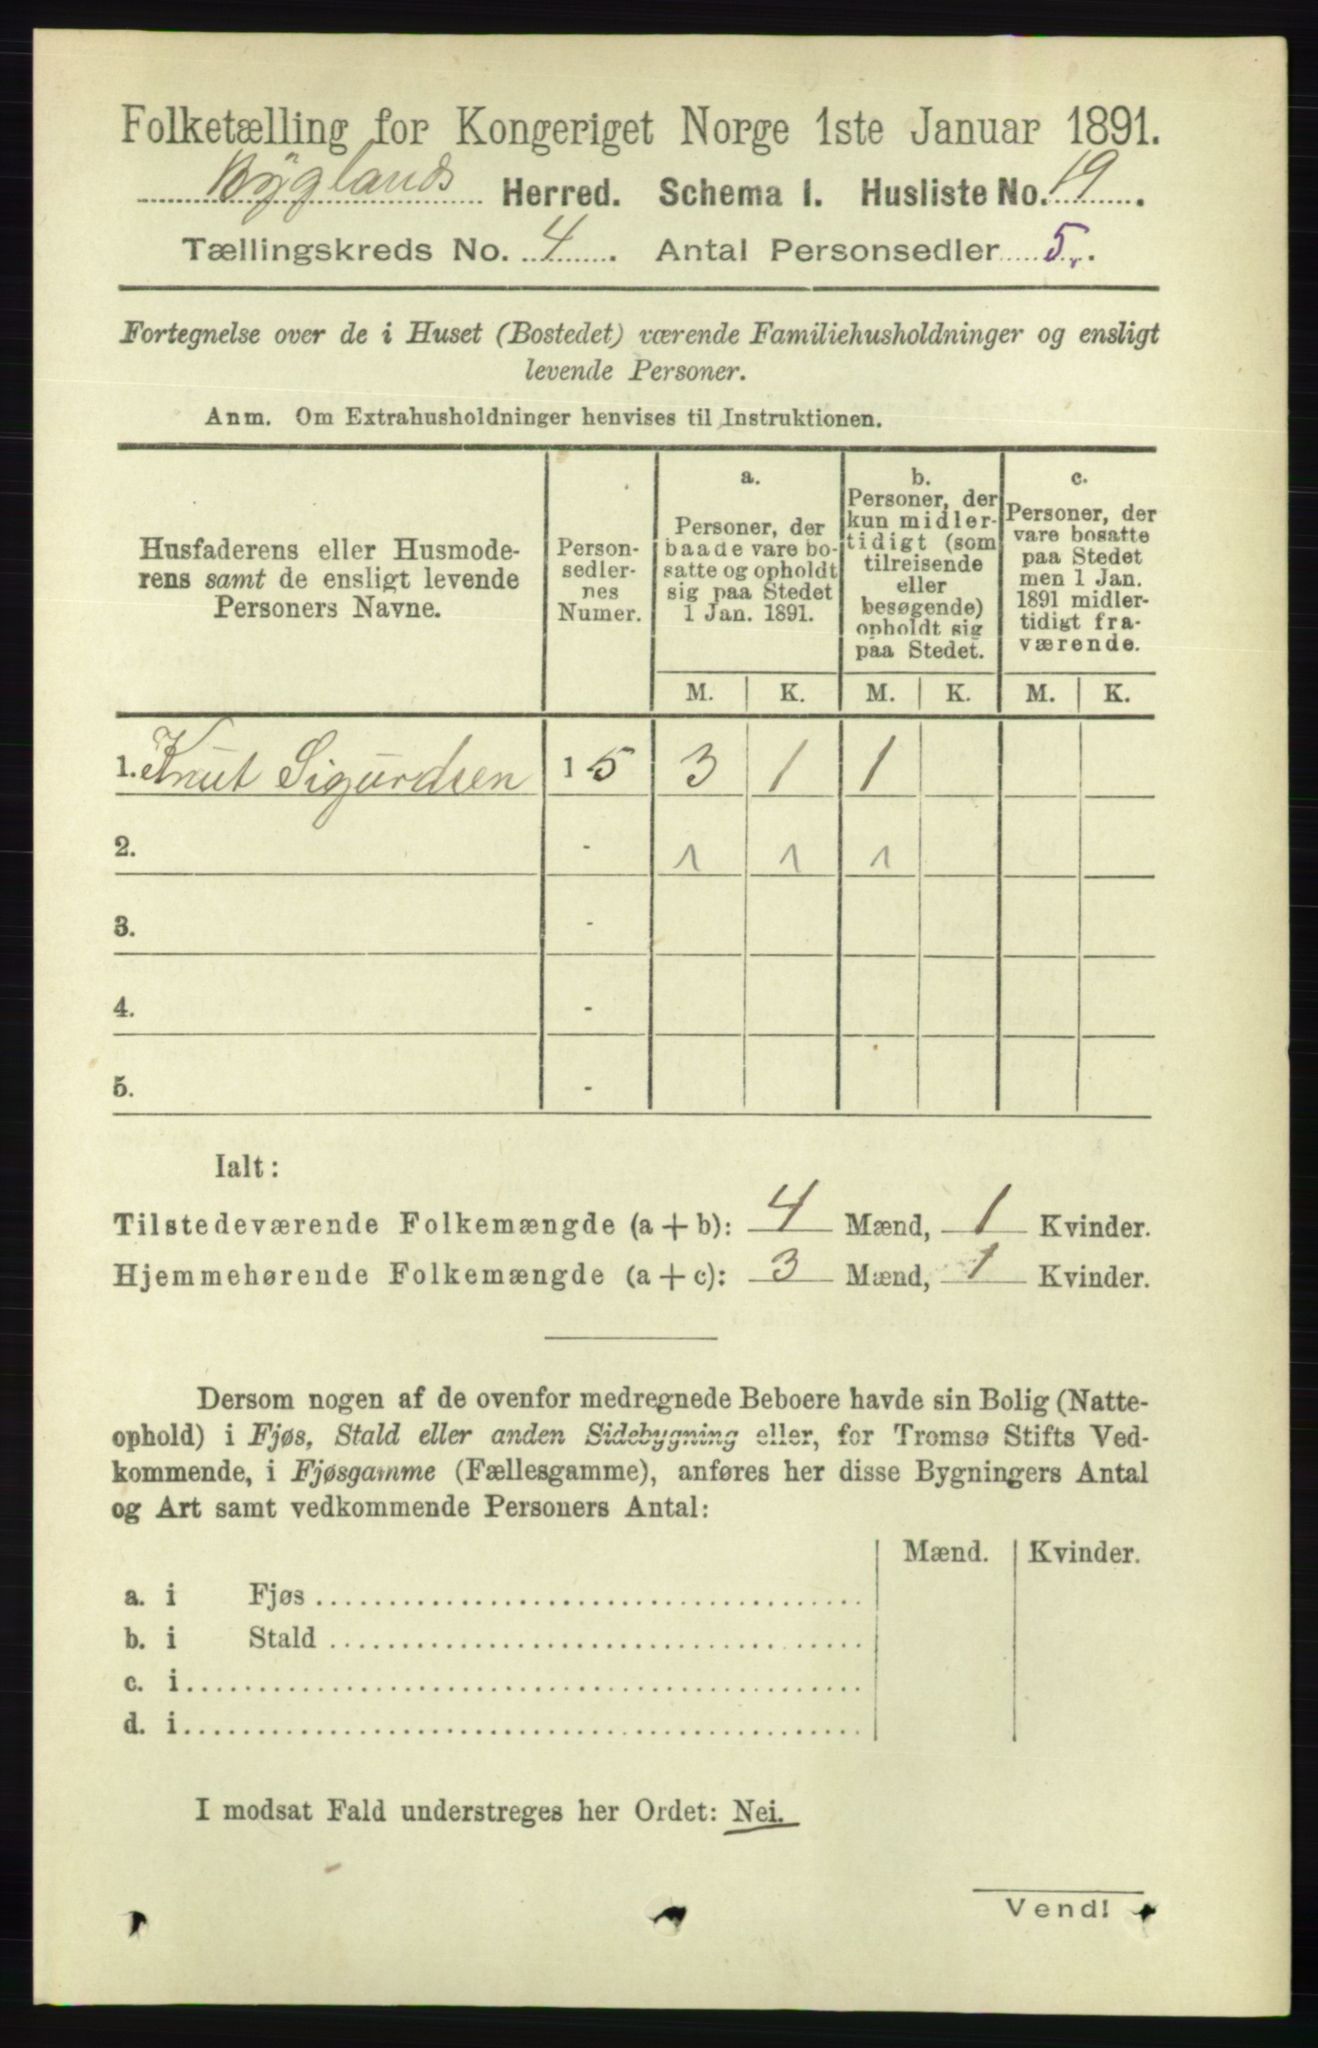 Folketælling for Kongeriget Norge 1ste Januar 1891.
Byglands Herred. Schema I. Husliste No. 19.
Tællingskreds No. 4. Antal Personsedler 5.
Fortegnelse over de i Huset (Bostedet) værende Familiehusholdninger og ensligt
levende Personer.
Anm. Om Extrahusholdninger henvises til Instruktionen.
Husfaderens eller Husmode-
rens samt de ensligt levende
Personers Navne.
Person-
sedler-
nes
Numer.
a.
Personer, der
baade vare bo-
satte og opholdt
sig paa Stedet
1 Jan. 1891.
b.
Personer, der
kun midler-
tidigt (som
tilreisende
eller
besøgende)
opholdt sig
paa Stedet.
c.
Personer, der
vare bosatte
paa Stedet
men 1 Jan.
1891 midler-
tidigt fra-
værende.
M. K. M. K. M. K.
1. Knut Sigurdsen 1 5 3 1 1
2. - 1 1 1
3. -
4. -
5. -
Ialt:
Tilstedeværende Folkemængde (a + b): 4 Mænd, 1 Kvinder.
Hjemmehørende Folkemængde (a + c): 3 Mænd, 1 Kvinder.
Dersom nogen af de ovenfor medregnede Beboere havde sin Bolig (Natte-
ophold) i Fjøs, Stald eller anden Sidebygning eller, for Tromsø Stifts Ved-
kommende, i Fjøsgamme (Fællesgamme), anføres her disse Bygningers Antal
og Art samt vedkommende Personers Antal:
Mænd. Kvinder.
a. i Fjøs
b. i Stald
c. i
d. i
I modsat Fald understreges her Ordet: Nei.
Vend!